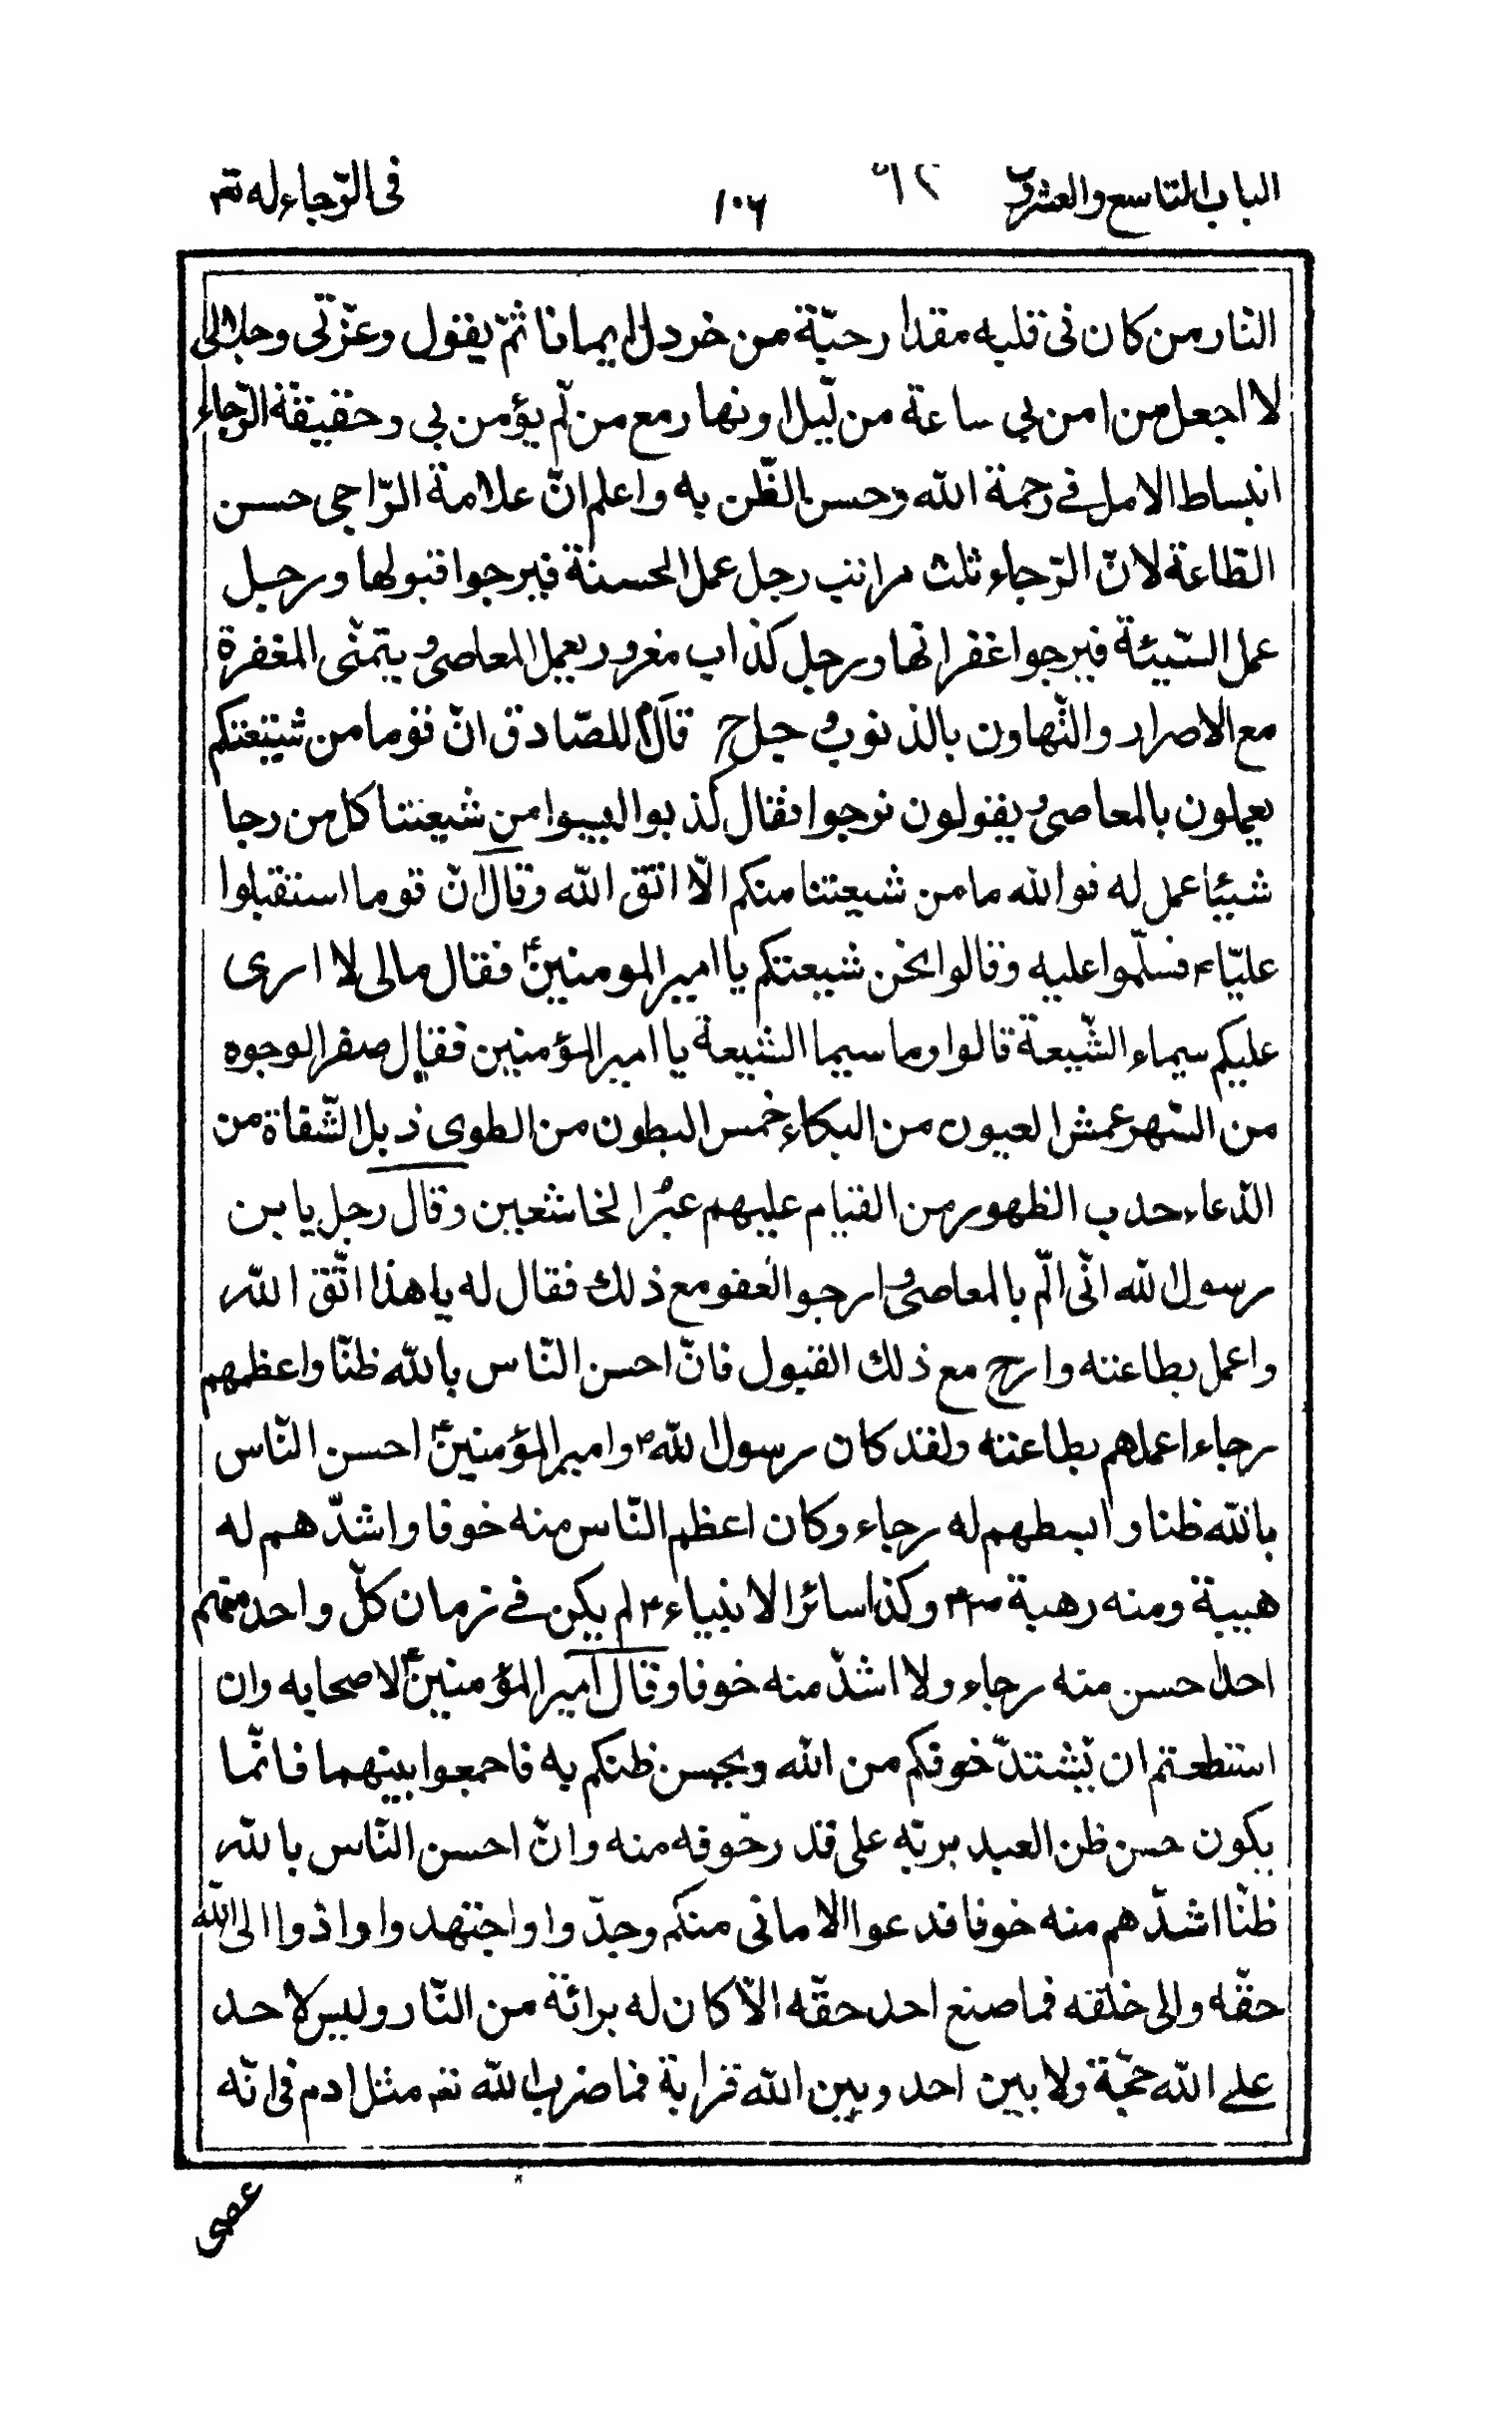 الباب التاسع والعشرون ١٠٦ فى الرّجاء له تع
النّار من كان فى قلبه مقدار حبّة من خردل ايمانا ثمّ يقول وعزّتى وجلالى
لا اجعل من امن بي ساعة من ليل او نهار مع من لم يؤمن بى وحقيقة الرّجاء
انبساط الامل فے رحمة الله وحسن الظّن به واعلم انّ علامة الرّاجى حسن
الطّاعة لانّ الرّجاء ثلث مراتب رجل عمل الحسنة فيرجوا قبولها ورجل
عمل السّيئة فيرجوا غفرانها ورجل كذاب مغرور يعمل المعاصى ويتمنّى المغفرة
مع الاصرار والتّهاون بالذنوب قال للصّادق انّ قوما من شيعتكم
يعملون بالمعاصى ويقولون نرجوا فقال كذبوا ليسوا من شيعتنا كل من رجا
شيئا عمل له فوالله ما من شيعتنا منكم الّا اتّقى الله وقال انّ قوما استقبلوا
عليّا ع فسلّموا عليه وقالوا نحن شيعتكم يا امير المومنين ع فقال مالى لا ارى
عليكم سيماء الشّيعة قالوا وما سيما الشيعة يا امير المؤمنين فقال صفر الوجوه
من السّهر عمش العيون من البكاء خمس البطون من الطوى ذبل الشّفاة من
الدّعاء حدب الظهور من القيام عليهم غبر الخاشعين وقال رجل يا بن
رسول الله انّى المّ بالمعاصى وارجوا العفو مع ذلك فقال له يا هذا اتّق الله
واعمل بطاعته وارج مع ذلك القبول فانّ احسن النّاس بالله ظنّا واعظمهم
رجاء اعملهم بطاعته ولقد كان رسول الله ص وامير المؤمنين ع احسن النّاس
بالله ظنا وابسطهم له رجاء وكان اعظم النّاس منه خوفا واشدّهم له
هيبة ومنه رهبة وكذا سائر الانبياء ع لم يكن فے زمان كلّ واحد منهم
احد احسن منه رجاء ولا اشدّ منه خوفا وقال امير المؤمنين ع لاصحابه وان
استطعتم ان يشتدّ خوفكم من الله ويحسن ظنكم به فاجمعوا بينهما فانّما
يكون حسن ظن العبد بربّه على قدر خوفه منه وانّ احسن النّاس بالله
ظنّا اشدّهم منه خوفا فدعوا الامانى منكم وجدّوا واجتهدوا وادّوا الى الله
حقّه والى خلقه فما صنع احد حقّه الّا كان له برائة من النّار وليس لاحد
علے الله حجّة ولا بين احد وبين الله قرابة فما ضرب الله تع مثل ادم فى انّه
عصى